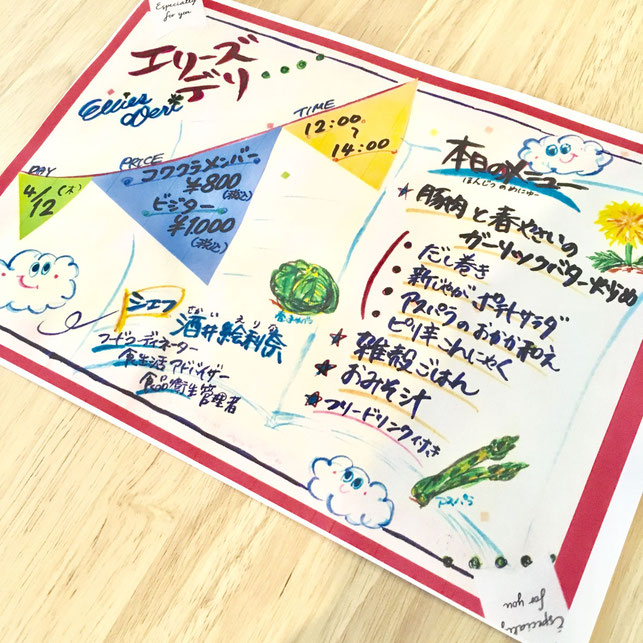 Especially
for you
エリーズ
デリ
Ellies
Deri
DAY
4/12 (木)
PRICE
コワクラメンバー
¥800
(税込)
ビジター
¥1,000
(税込)
TIME
12:00
〜
14:00
シェフ
酒井絵利奈
フードコーディネーター
食生活アドバイザー
食品衛生管理者
春キャベツ
本日のメニュー
ほんじつのめにゅー
★豚肉と春やさいの
ガーリックバター炒め
・だし巻き
・新じゃがポテトサラダ
・アスパラのおかか和え
・ピリ辛こんにゃく
★雑穀ごはん
★おみそ汁
★フリードリンク付き
アスパラ
Especially
for you